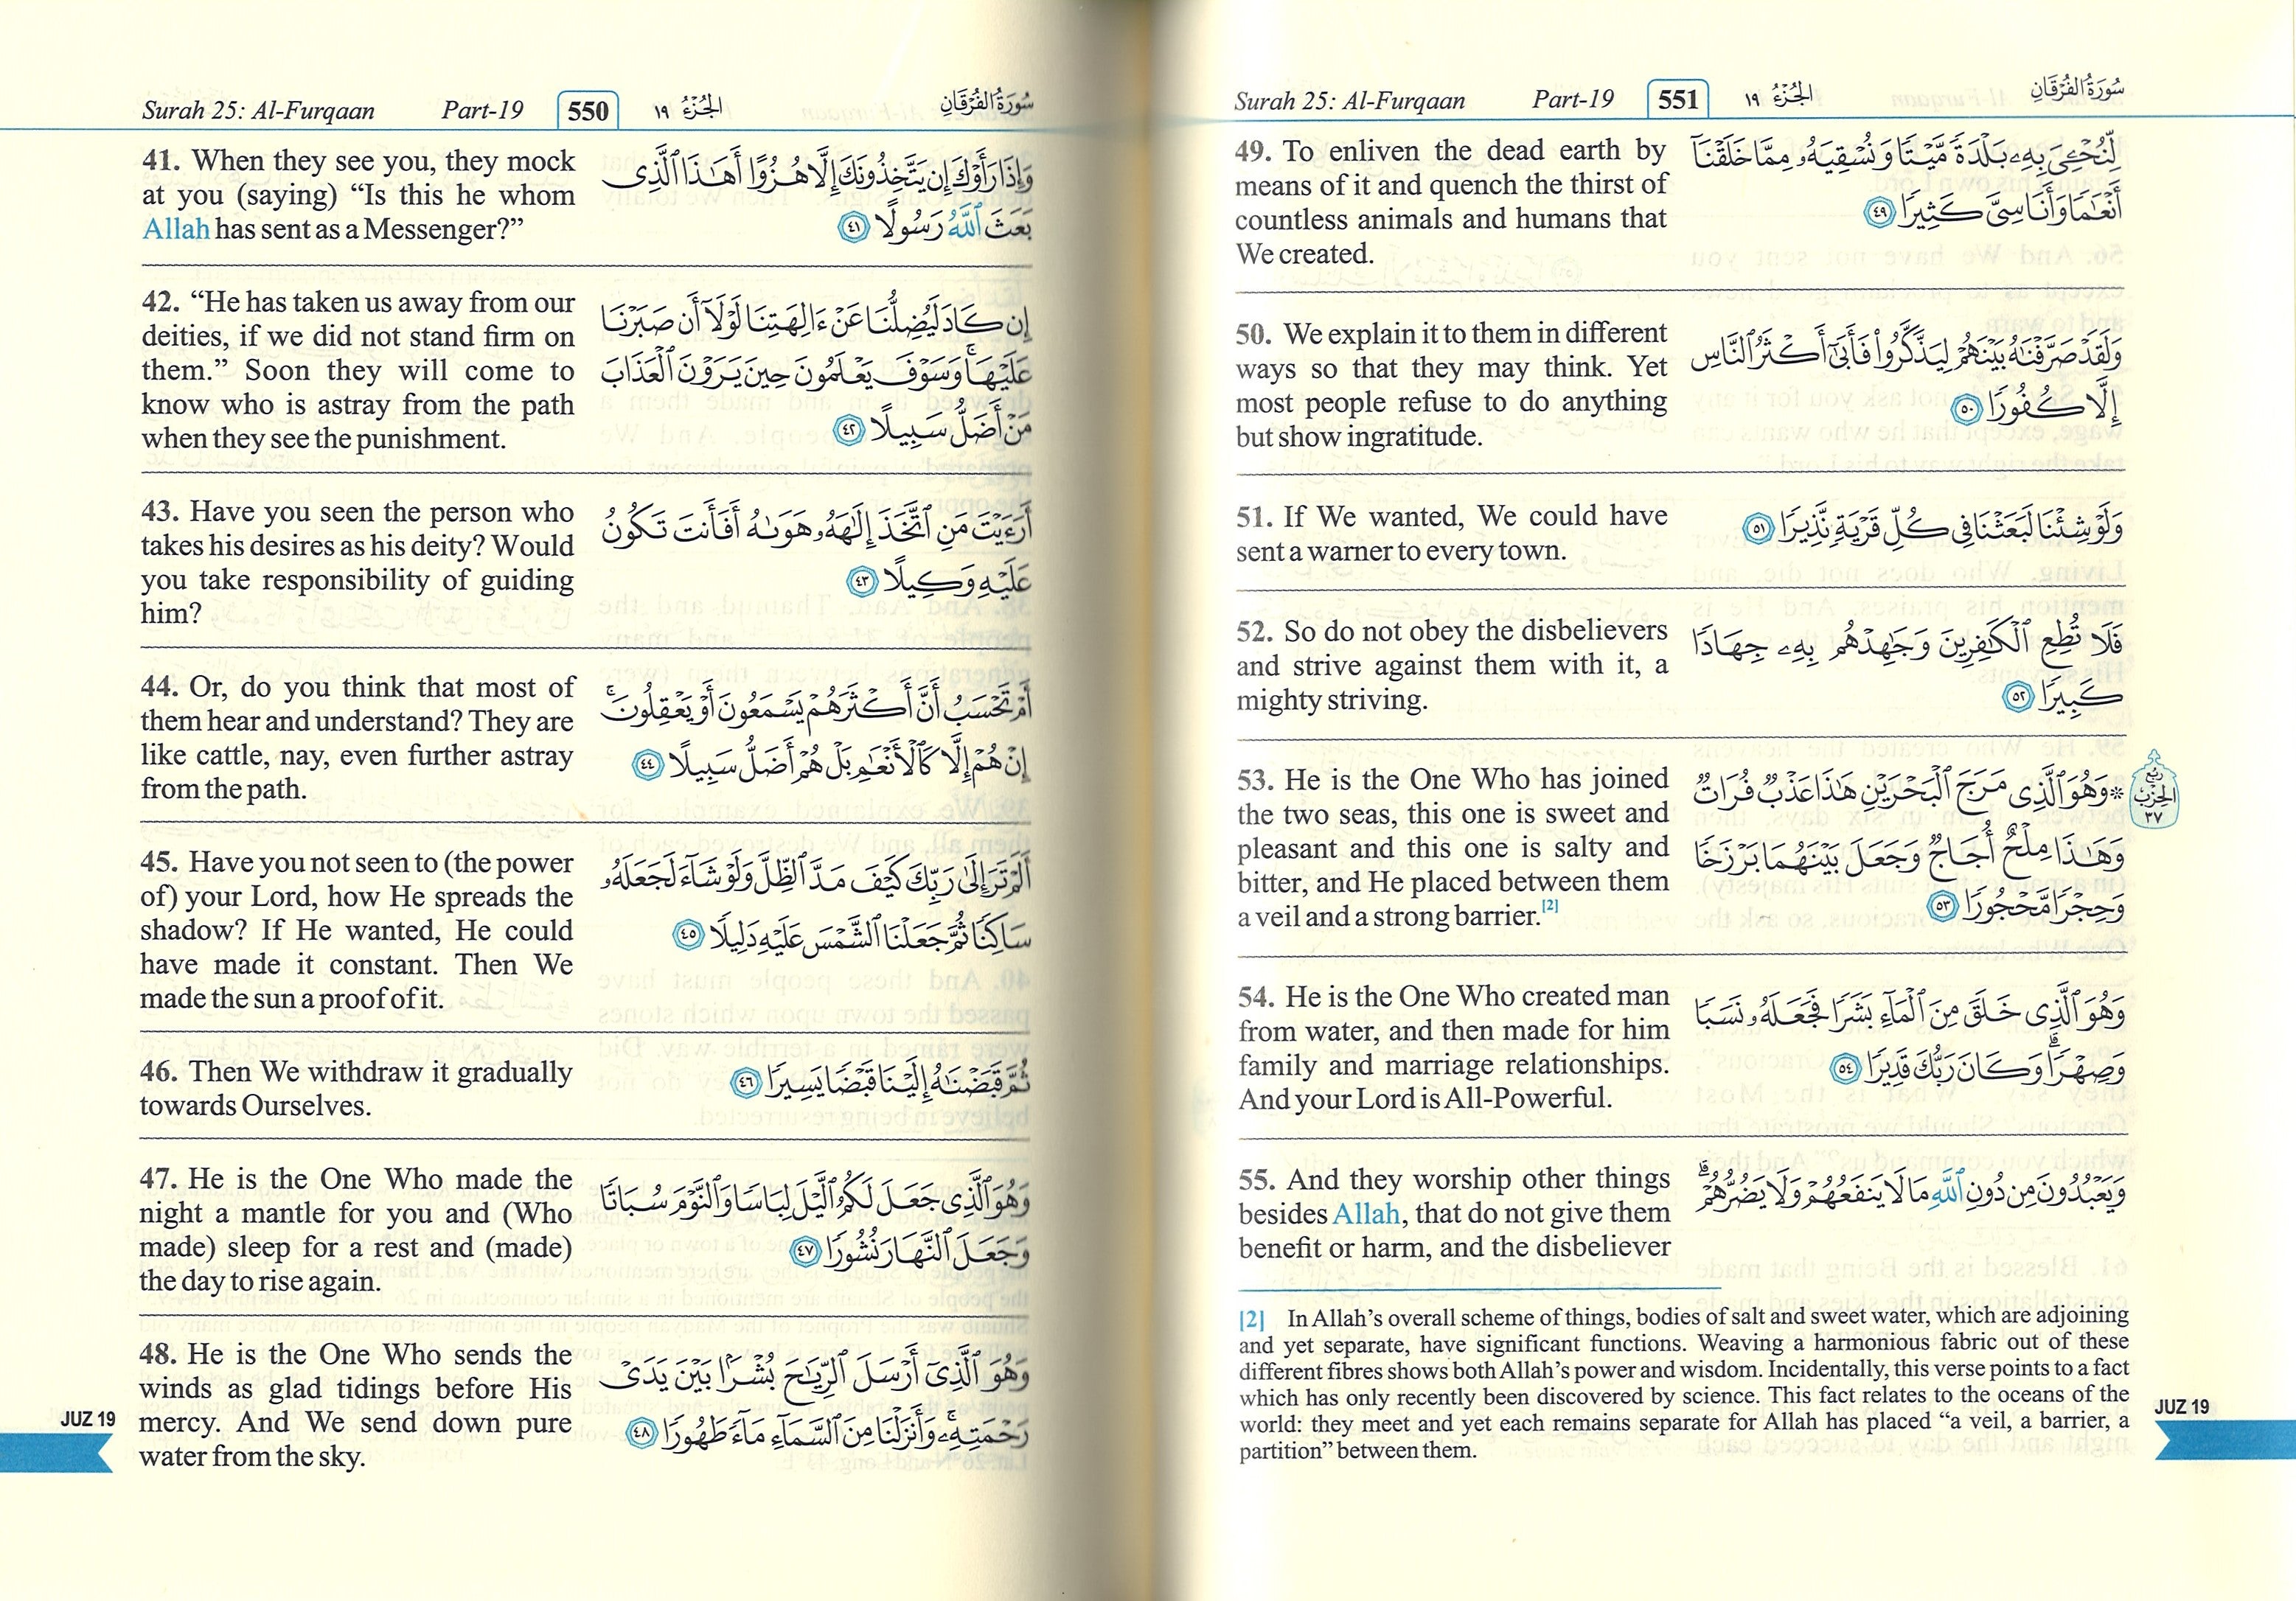 Surah 25: Al-Furqaan Part-19 550 الجُزْءُ ١٩ سُورَةُ الفُرْقَان
41. When they see you, they mock
at you (saying) “Is this he whom
Allah has sent as a Messenger?”
وَإِذَا رَأَوْكَ إِن يَتَّخِذُونَكَ إِلَّا هُزُوًا أَهَٰذَا ٱلَّذِى
بَعَثَ ٱللَّهُ رَسُولًا ٤١
42. “He has taken us away from our
deities, if we did not stand firm on
them.” Soon they will come to
know who is astray from the path
when they see the punishment.
إِن كَادَ لَيُضِلُّنَا عَنْ ءَالِهَتِنَا لَوْلَآ أَن صَبَرْنَا
عَلَيْهَا ۚ وَسَوْفَ يَعْلَمُونَ حِينَ يَرَوْنَ ٱلْعَذَابَ
مَنْ أَضَلُّ سَبِيلًا ٤٢
43. Have you seen the person who
takes his desires as his deity? Would
you take responsibility of guiding
him?
أَرَءَيْتَ مَنِ ٱتَّخَذَ إِلَٰهَهُۥ هَوَىٰهُ أَفَأَنتَ تَكُونُ
عَلَيْهِ وَكِيلًا ٤٣
44. Or, do you think that most of
them hear and understand? They are
like cattle, nay, even further astray
from the path.
أَمْ تَحْسَبُ أَنَّ أَكْثَرَهُمْ يَسْمَعُونَ أَوْ يَعْقِلُونَ ۚ
إِنْ هُمْ إِلَّا كَٱلْأَنْعَٰمِ بَلْ هُمْ أَضَلُّ سَبِيلًا ٤٤
45. Have you not seen to (the power
of) your Lord, how He spreads the
shadow? If He wanted, He could
have made it constant. Then We
made the sun a proof of it.
أَلَمْ تَرَ إِلَىٰ رَبِّكَ كَيْفَ مَدَّ ٱلظِّلَّ وَلَوْ شَآءَ لَجَعَلَهُۥ
سَاكِنًا ثُمَّ جَعَلْنَا ٱلشَّمْسَ عَلَيْهِ دَلِيلًا ٤٥
46. Then We withdraw it gradually
towards Ourselves.
ثُمَّ قَبَضْنَٰهُ إِلَيْنَا قَبْضًا يَسِيرًا ٤٦
47. He is the One Who made the
night a mantle for you and (Who
made) sleep for a rest and (made)
the day to rise again.
وَهُوَ ٱلَّذِى جَعَلَ لَكُمُ ٱلَّيْلَ لِبَاسًا وَٱلنَّوْمَ سُبَاتًا
وَجَعَلَ ٱلنَّهَارَ نُشُورًا ٤٧
48. He is the One Who sends the
winds as glad tidings before His
mercy. And We send down pure
water from the sky.
وَهُوَ ٱلَّذِىٓ أَرْسَلَ ٱلرِّيَٰحَ بُشْرًۢا بَيْنَ يَدَىْ
رَحْمَتِهِۦ ۚ وَأَنزَلْنَا مِنَ ٱلسَّمَآءِ مَآءً طَهُورًا ٤٨
JUZ 19
Surah 25: Al-Furqaan Part-19 551 الجُزْءُ ١٩ سُورَةُ الفُرْقَان
49. To enliven the dead earth by
means of it and quench the thirst of
countless animals and humans that
We created.
لِّنُحْۦِىَ بِهِۦ بَلْدَةً مَّيْتًا وَنُسْقِيَهُۥ مِمَّا خَلَقْنَآ
أَنْعَٰمًا وَأَنَاسِىَّ كَثِيرًا ٤٩
50. We explain it to them in different
ways so that they may think. Yet
most people refuse to do anything
but show ingratitude.
وَلَقَدْ صَرَّفْنَٰهُ بَيْنَهُمْ لِيَذَّكَّرُوا۟ فَأَبَىٰٓ أَكْثَرُ ٱلنَّاسِ
إِلَّا كُفُورًا ٥٠
51. If We wanted, We could have
sent a warner to every town.
وَلَوْ شِئْنَا لَبَعَثْنَا فِى كُلِّ قَرْيَةٍ نَّذِيرًا ٥١
52. So do not obey the disbelievers
and strive against them with it, a
mighty striving.
فَلَا تُطِعِ ٱلْكَٰفِرِينَ وَجَٰهِدْهُم بِهِۦ جِهَادًا
كَبِيرًا ٥٢
53. He is the One Who has joined
the two seas, this one is sweet and
pleasant and this one is salty and
bitter, and He placed between them
a veil and a strong barrier.[2]
* وَهُوَ ٱلَّذِى مَرَجَ ٱلْبَحْرَيْنِ هَٰذَا عَذْبٌ فُرَاتٌ
وَهَٰذَا مِلْحٌ أُجَاجٌ وَجَعَلَ بَيْنَهُمَا بَرْزَخًا
وَحِجْرًا مَّحْجُورًا ٥٣
رُبْع
الحِزْب
٣٧
54. He is the One Who created man
from water, and then made for him
family and marriage relationships.
And your Lord is All-Powerful.
وَهُوَ ٱلَّذِى خَلَقَ مِنَ ٱلْمَآءِ بَشَرًا فَجَعَلَهُۥ نَسَبًا
وَصِهْرًا ۗ وَكَانَ رَبُّكَ قَدِيرًا ٥٤
55. And they worship other things
besides Allah, that do not give them
benefit or harm, and the disbeliever
وَيَعْبُدُونَ مِن دُونِ ٱللَّهِ مَا لَا يَنفَعُهُمْ وَلَا يَضُرُّهُمْ ۗ
[2] In Allah’s overall scheme of things, bodies of salt and sweet water, which are adjoining
and yet separate, have significant functions. Weaving a harmonious fabric out of these
different fibres shows both Allah’s power and wisdom. Incidentally, this verse points to a fact
which has only recently been discovered by science. This fact relates to the oceans of the
world: they meet and yet each remains separate for Allah has placed “a veil, a barrier, a
partition” between them.
JUZ 19